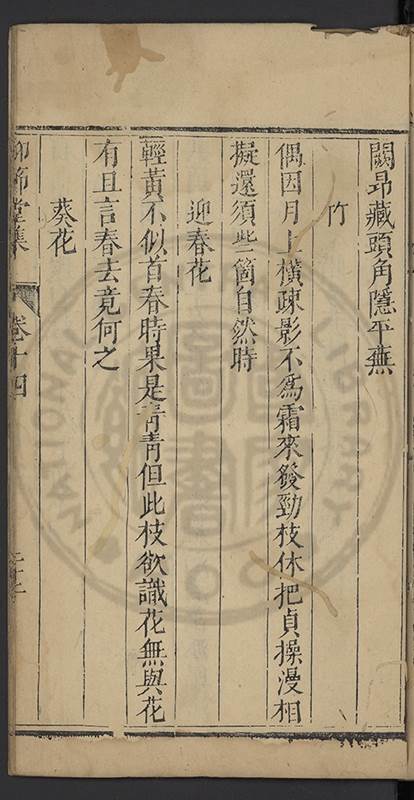 闕昂藏頭角隱平蕪
竹
偶因月上橫疎影不爲霜來發勁枝休把貞操漫相
擬還須些箇自然時
迎春花
輕黃不似首春時果是青青但此枝欲識花無與花
有且言春去竟何之
葵花
卷十四